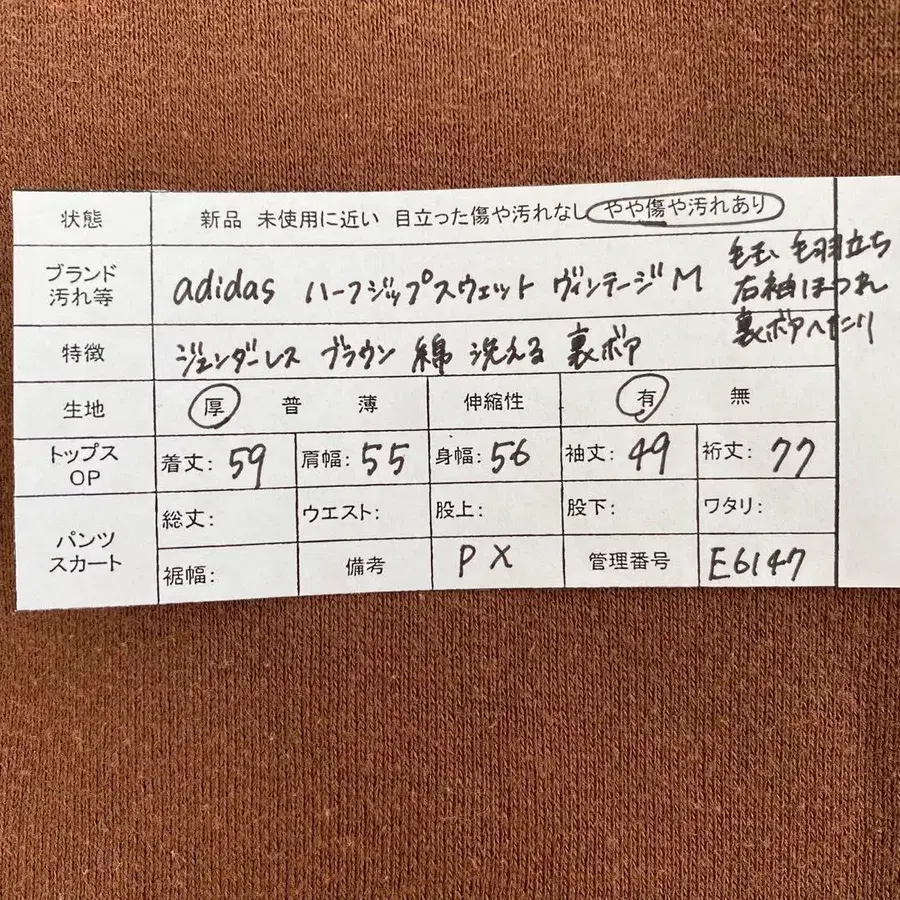 状態 新品 未使用に近い 目立った傷や汚れなし やや傷や汚れあり
ブランド 汚れ等 adidas ハーフジップスウェット ヴィンテージM
毛玉、毛羽立ち
右袖ほつれ
裏ボアへたり
特徴 ジェンダーレス ブラウン 綿 洗える 裏ボア
生地 厚 普 薄 伸縮性 有 無
トップス OP 着丈: 59 肩幅: 55 身幅: 56 袖丈: 49 裄丈: 77
パンツ スカート 総丈: ウエスト: 股上: 股下: ワタリ:
裾幅: 備考 PX 管理番号 E6147